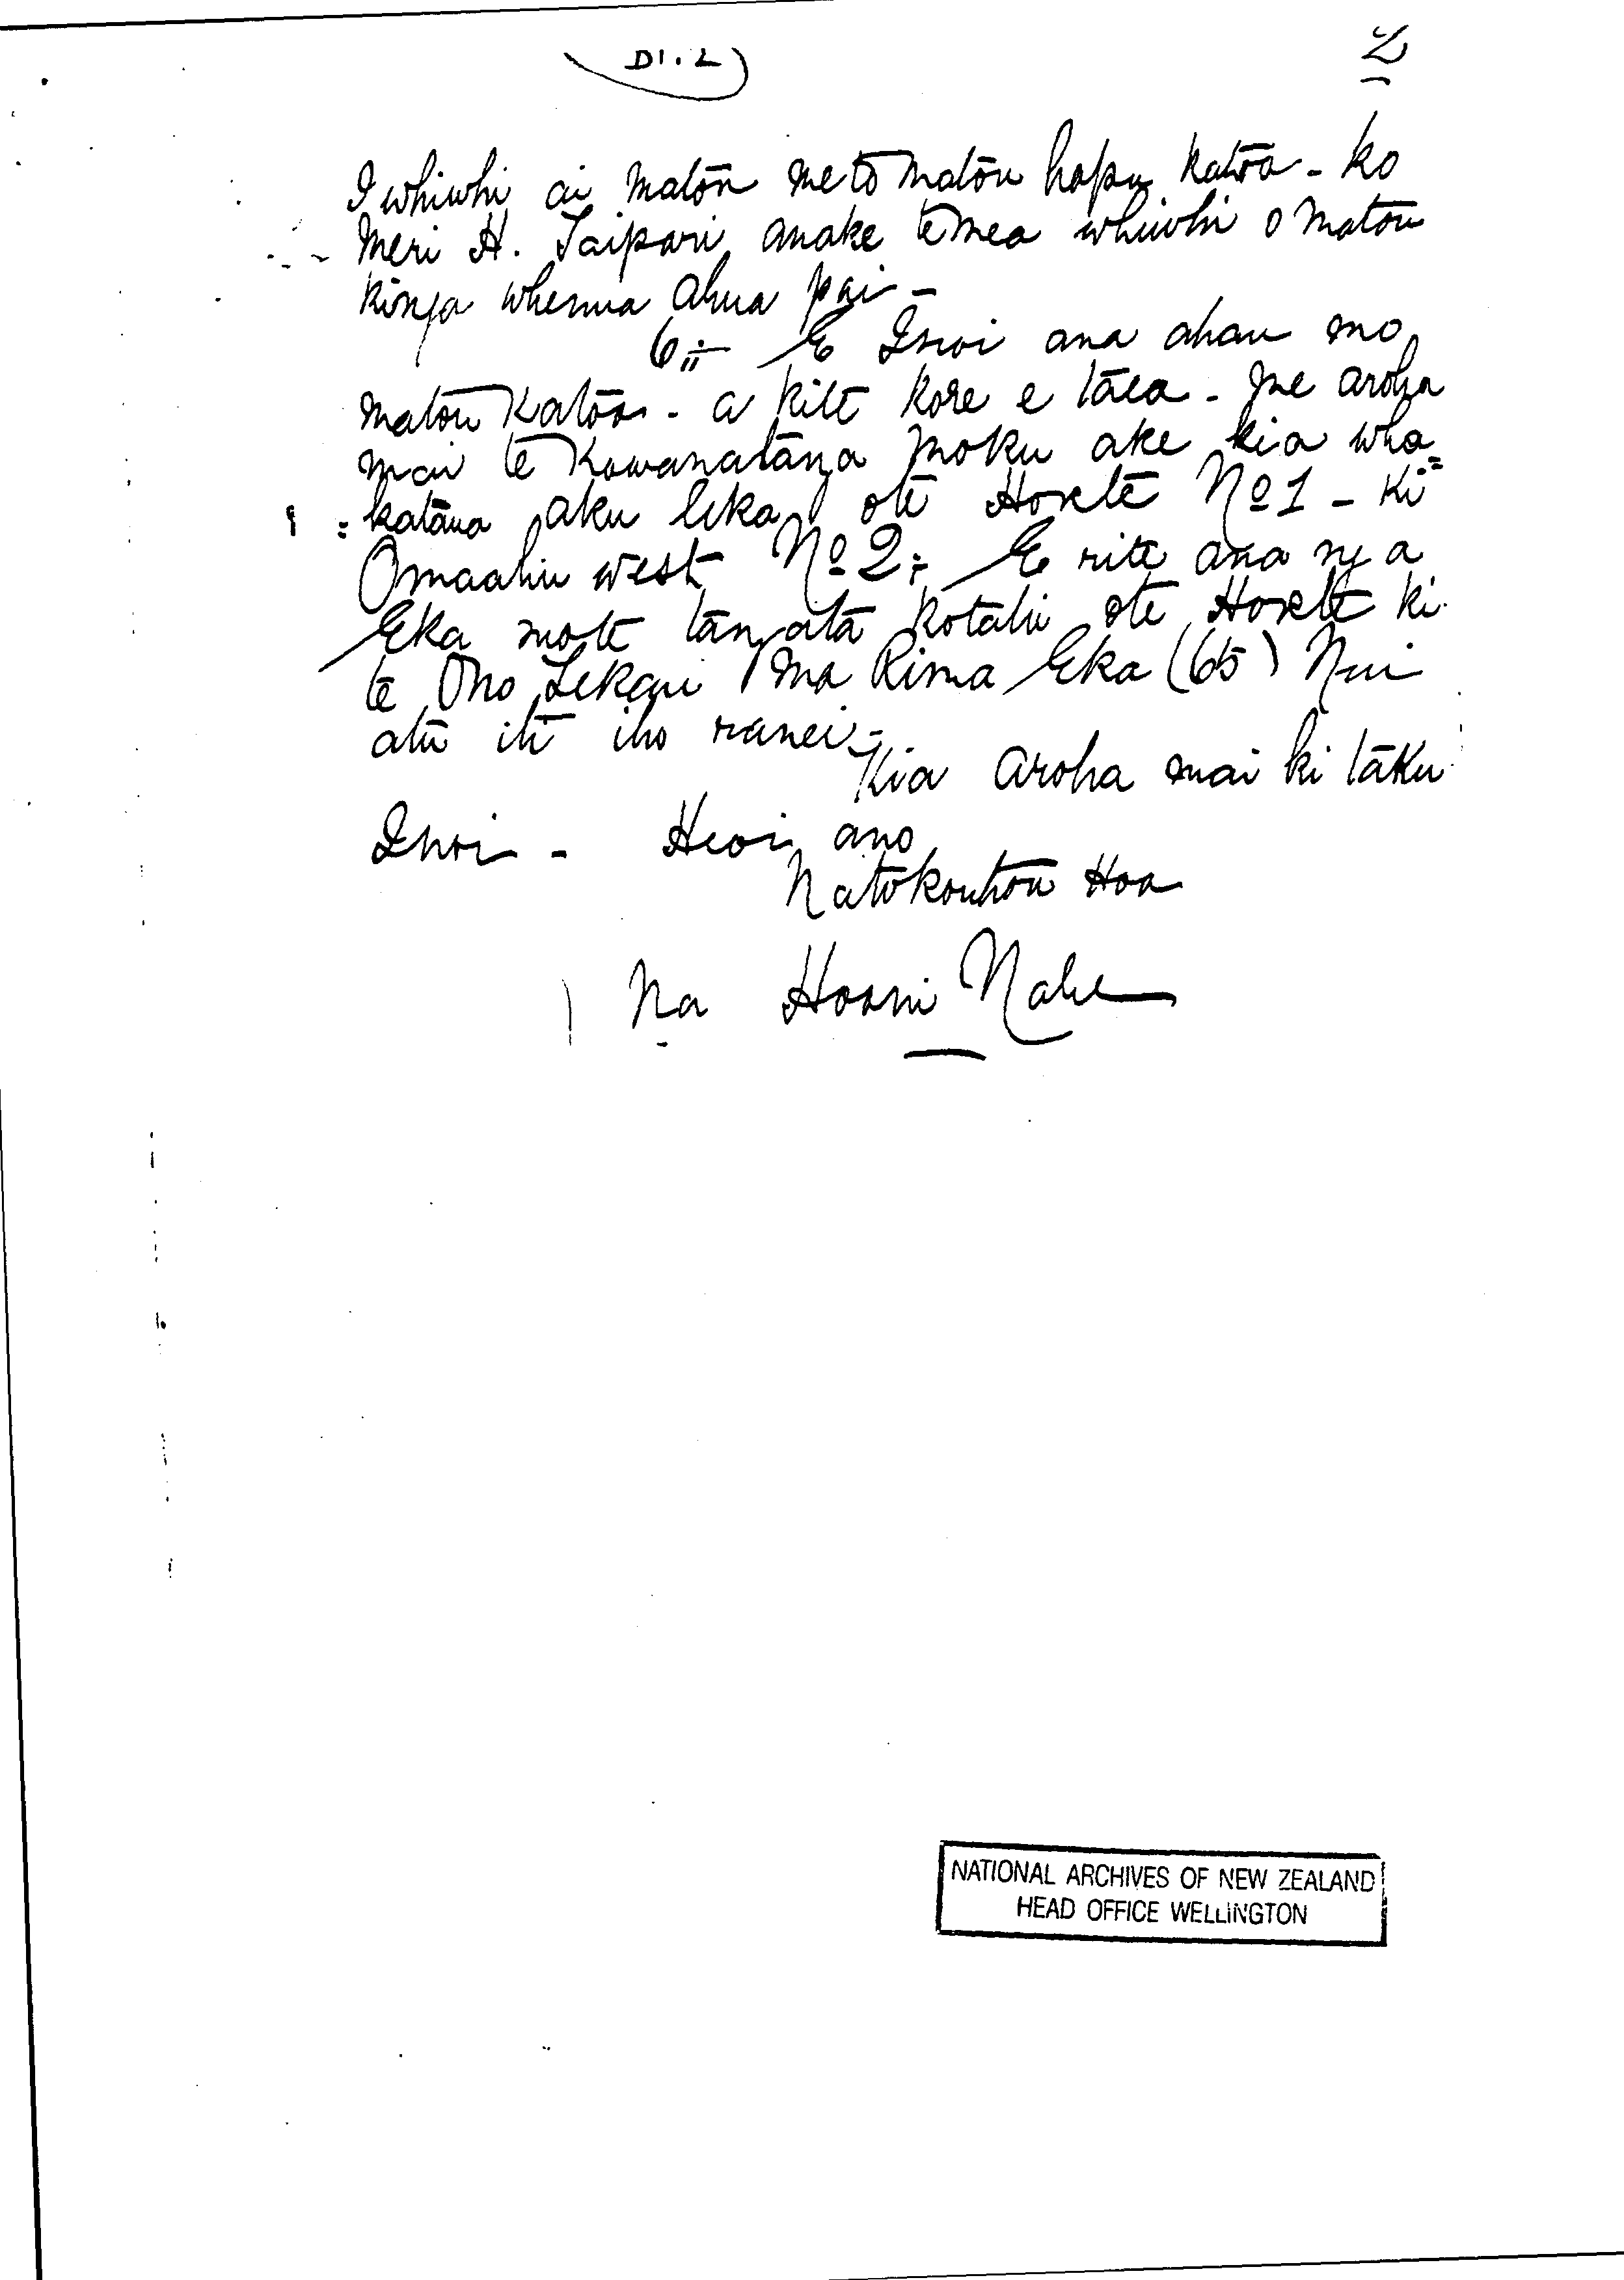 D1.2
2
I whiwhi ai matou me to matou hapu katoa - ko
Meri H. Taipari anake te mea whiwhi o matou
kinga whenua ahua pai -
6;- E Inoi ana ahau mo
matou katoa - a kite kore e taea - me aroha
mai te Kawanatanga moku ake kia wha=
=kataua aku eka ote Hoxete No 1 - ki
Omaahu west No 2; E rite ana nga
Eka mote tangata kotahi ote Hoxete ki
te Ono Tekau ma Rima Eka (65) Nui
atu iti iho ranei -
Kia aroha mai ki taku
Inoi - Heoi ano
Na to koutou Hoa
Na Hoani Nahe
NATIONAL ARCHIVES OF NEW ZEALAND
HEAD OFFICE WELLINGTON